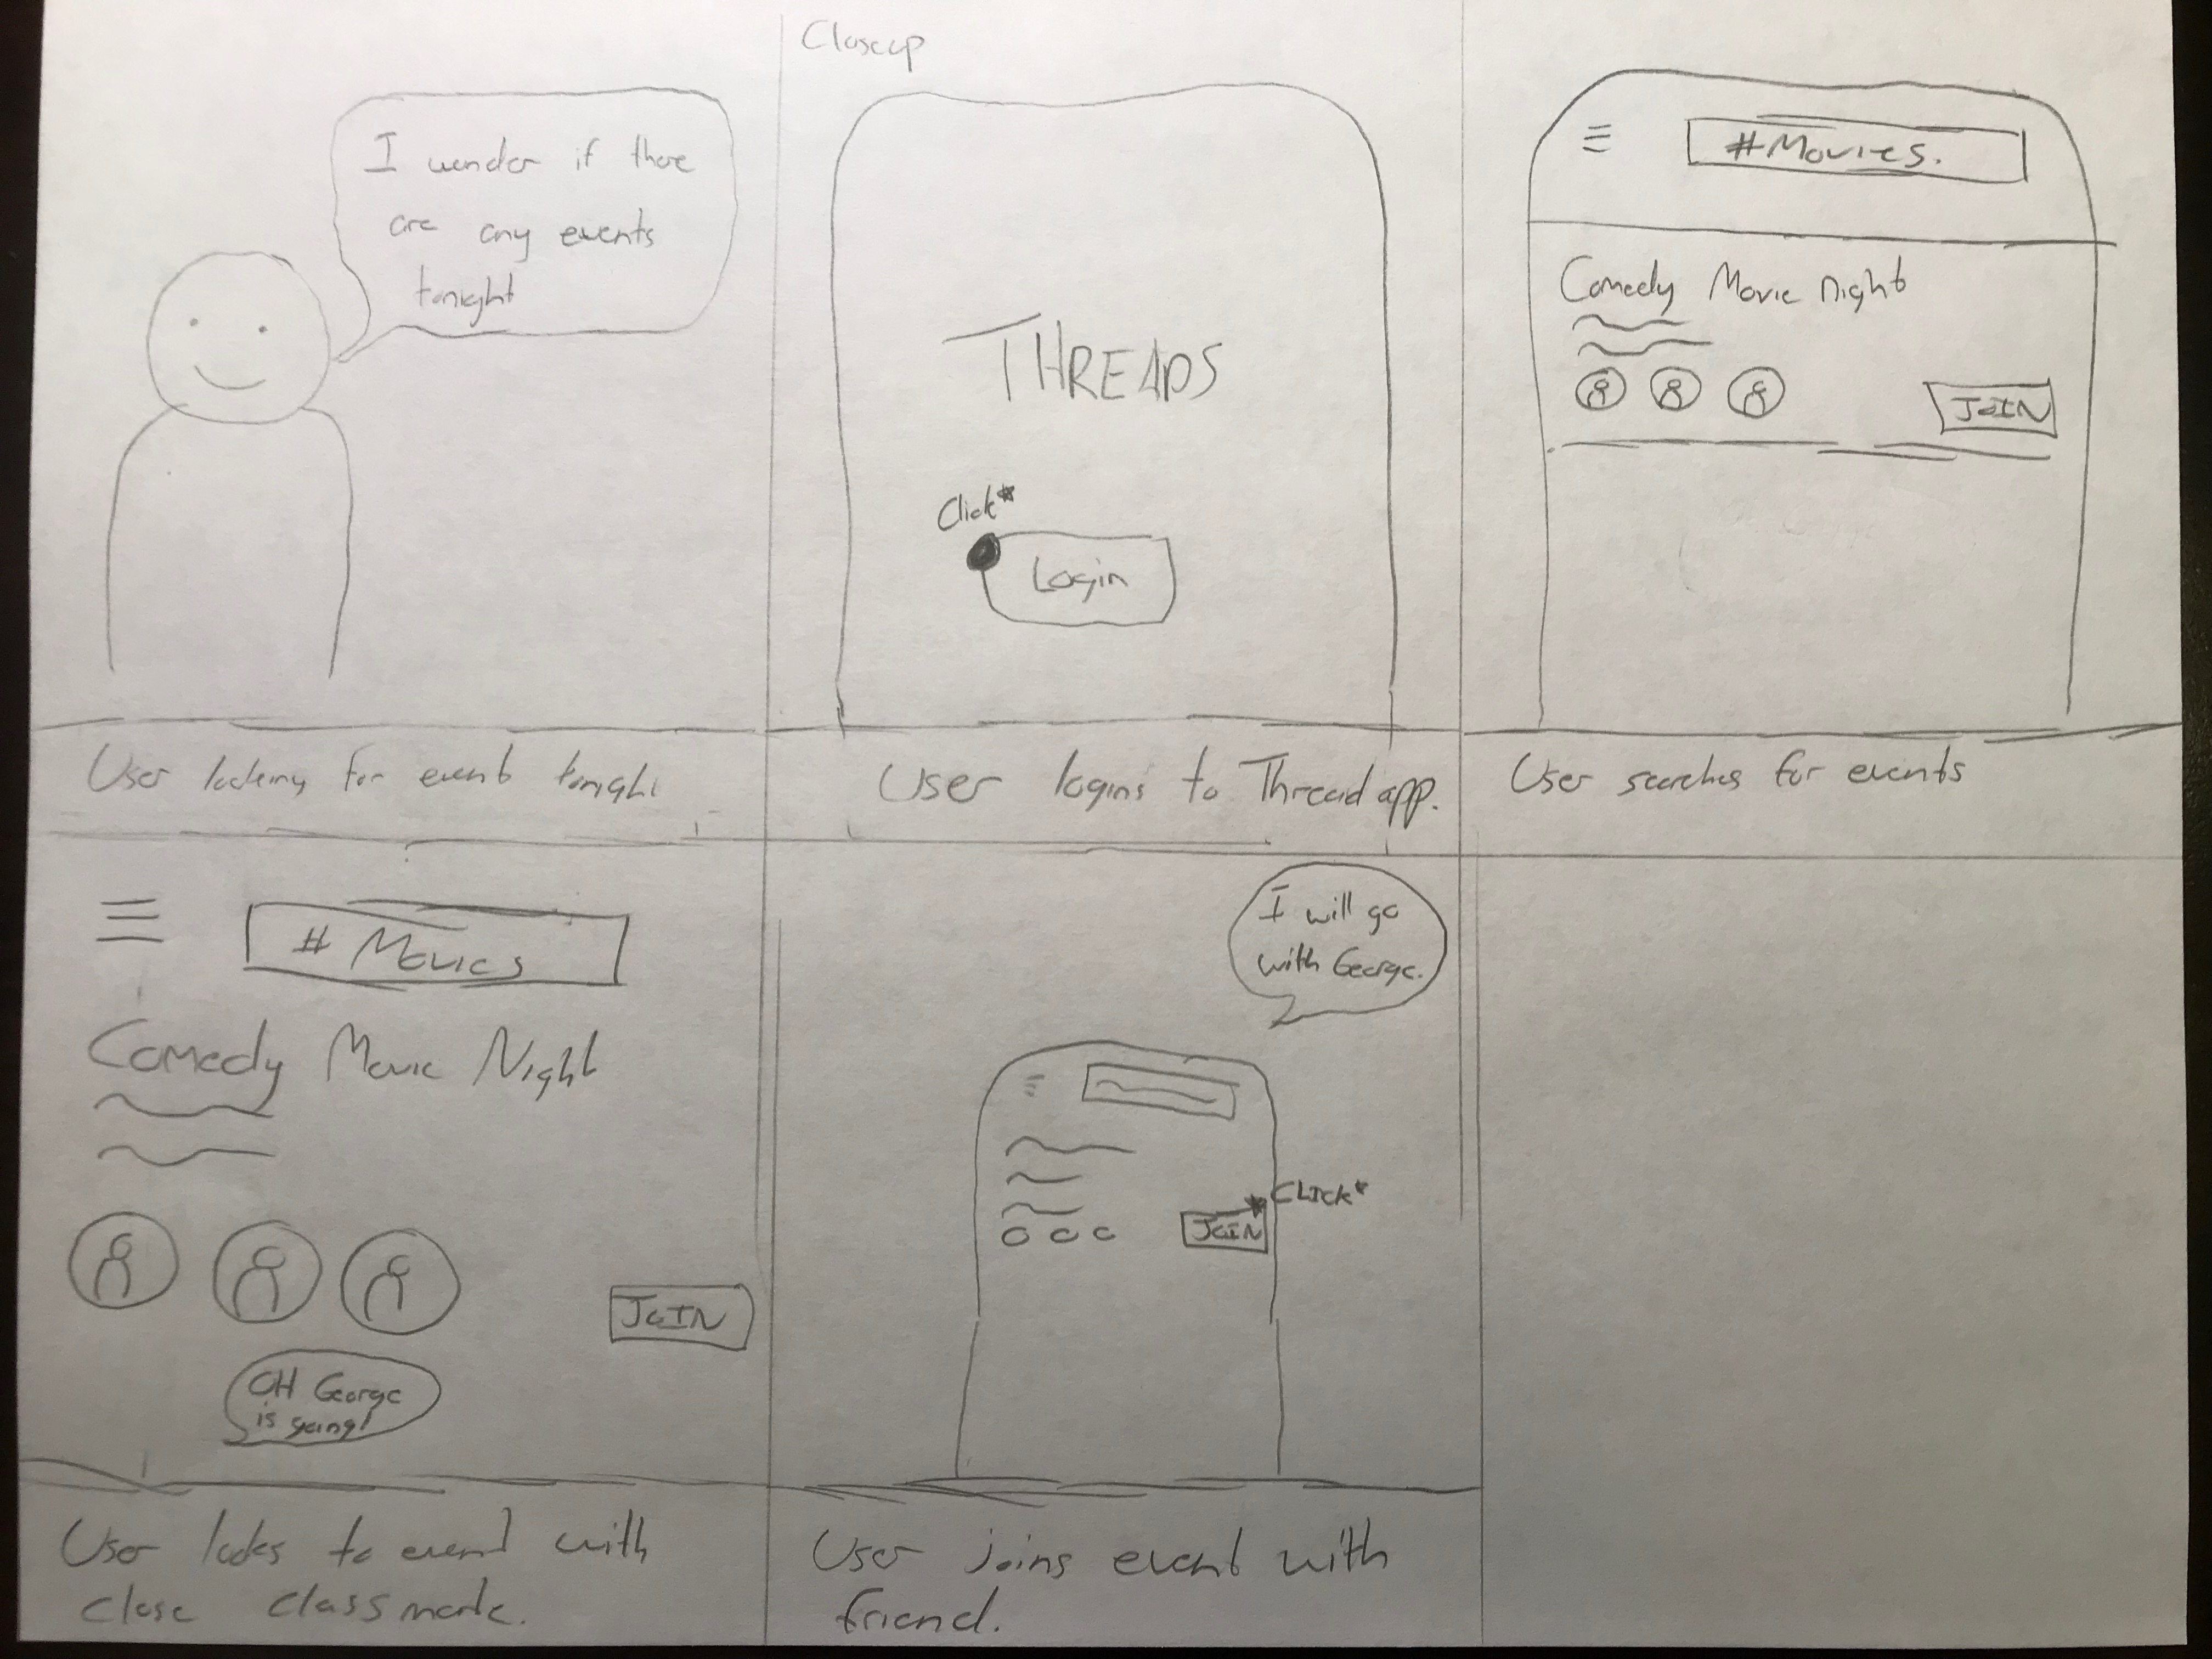 I wonder if there
are any events
tonight
User looking for event tonight
Closeup
THREADS
Click*
Login
User logins to Thread app.
#Movies.
Comedy Movie night
JOIN
User searches for events
# Movies
Comedy Movie Night
JOIN
OH George
is going
User looks to event with
close classmate.
I will go
with George.
*Click*
JOIN
User joins event with
friend.